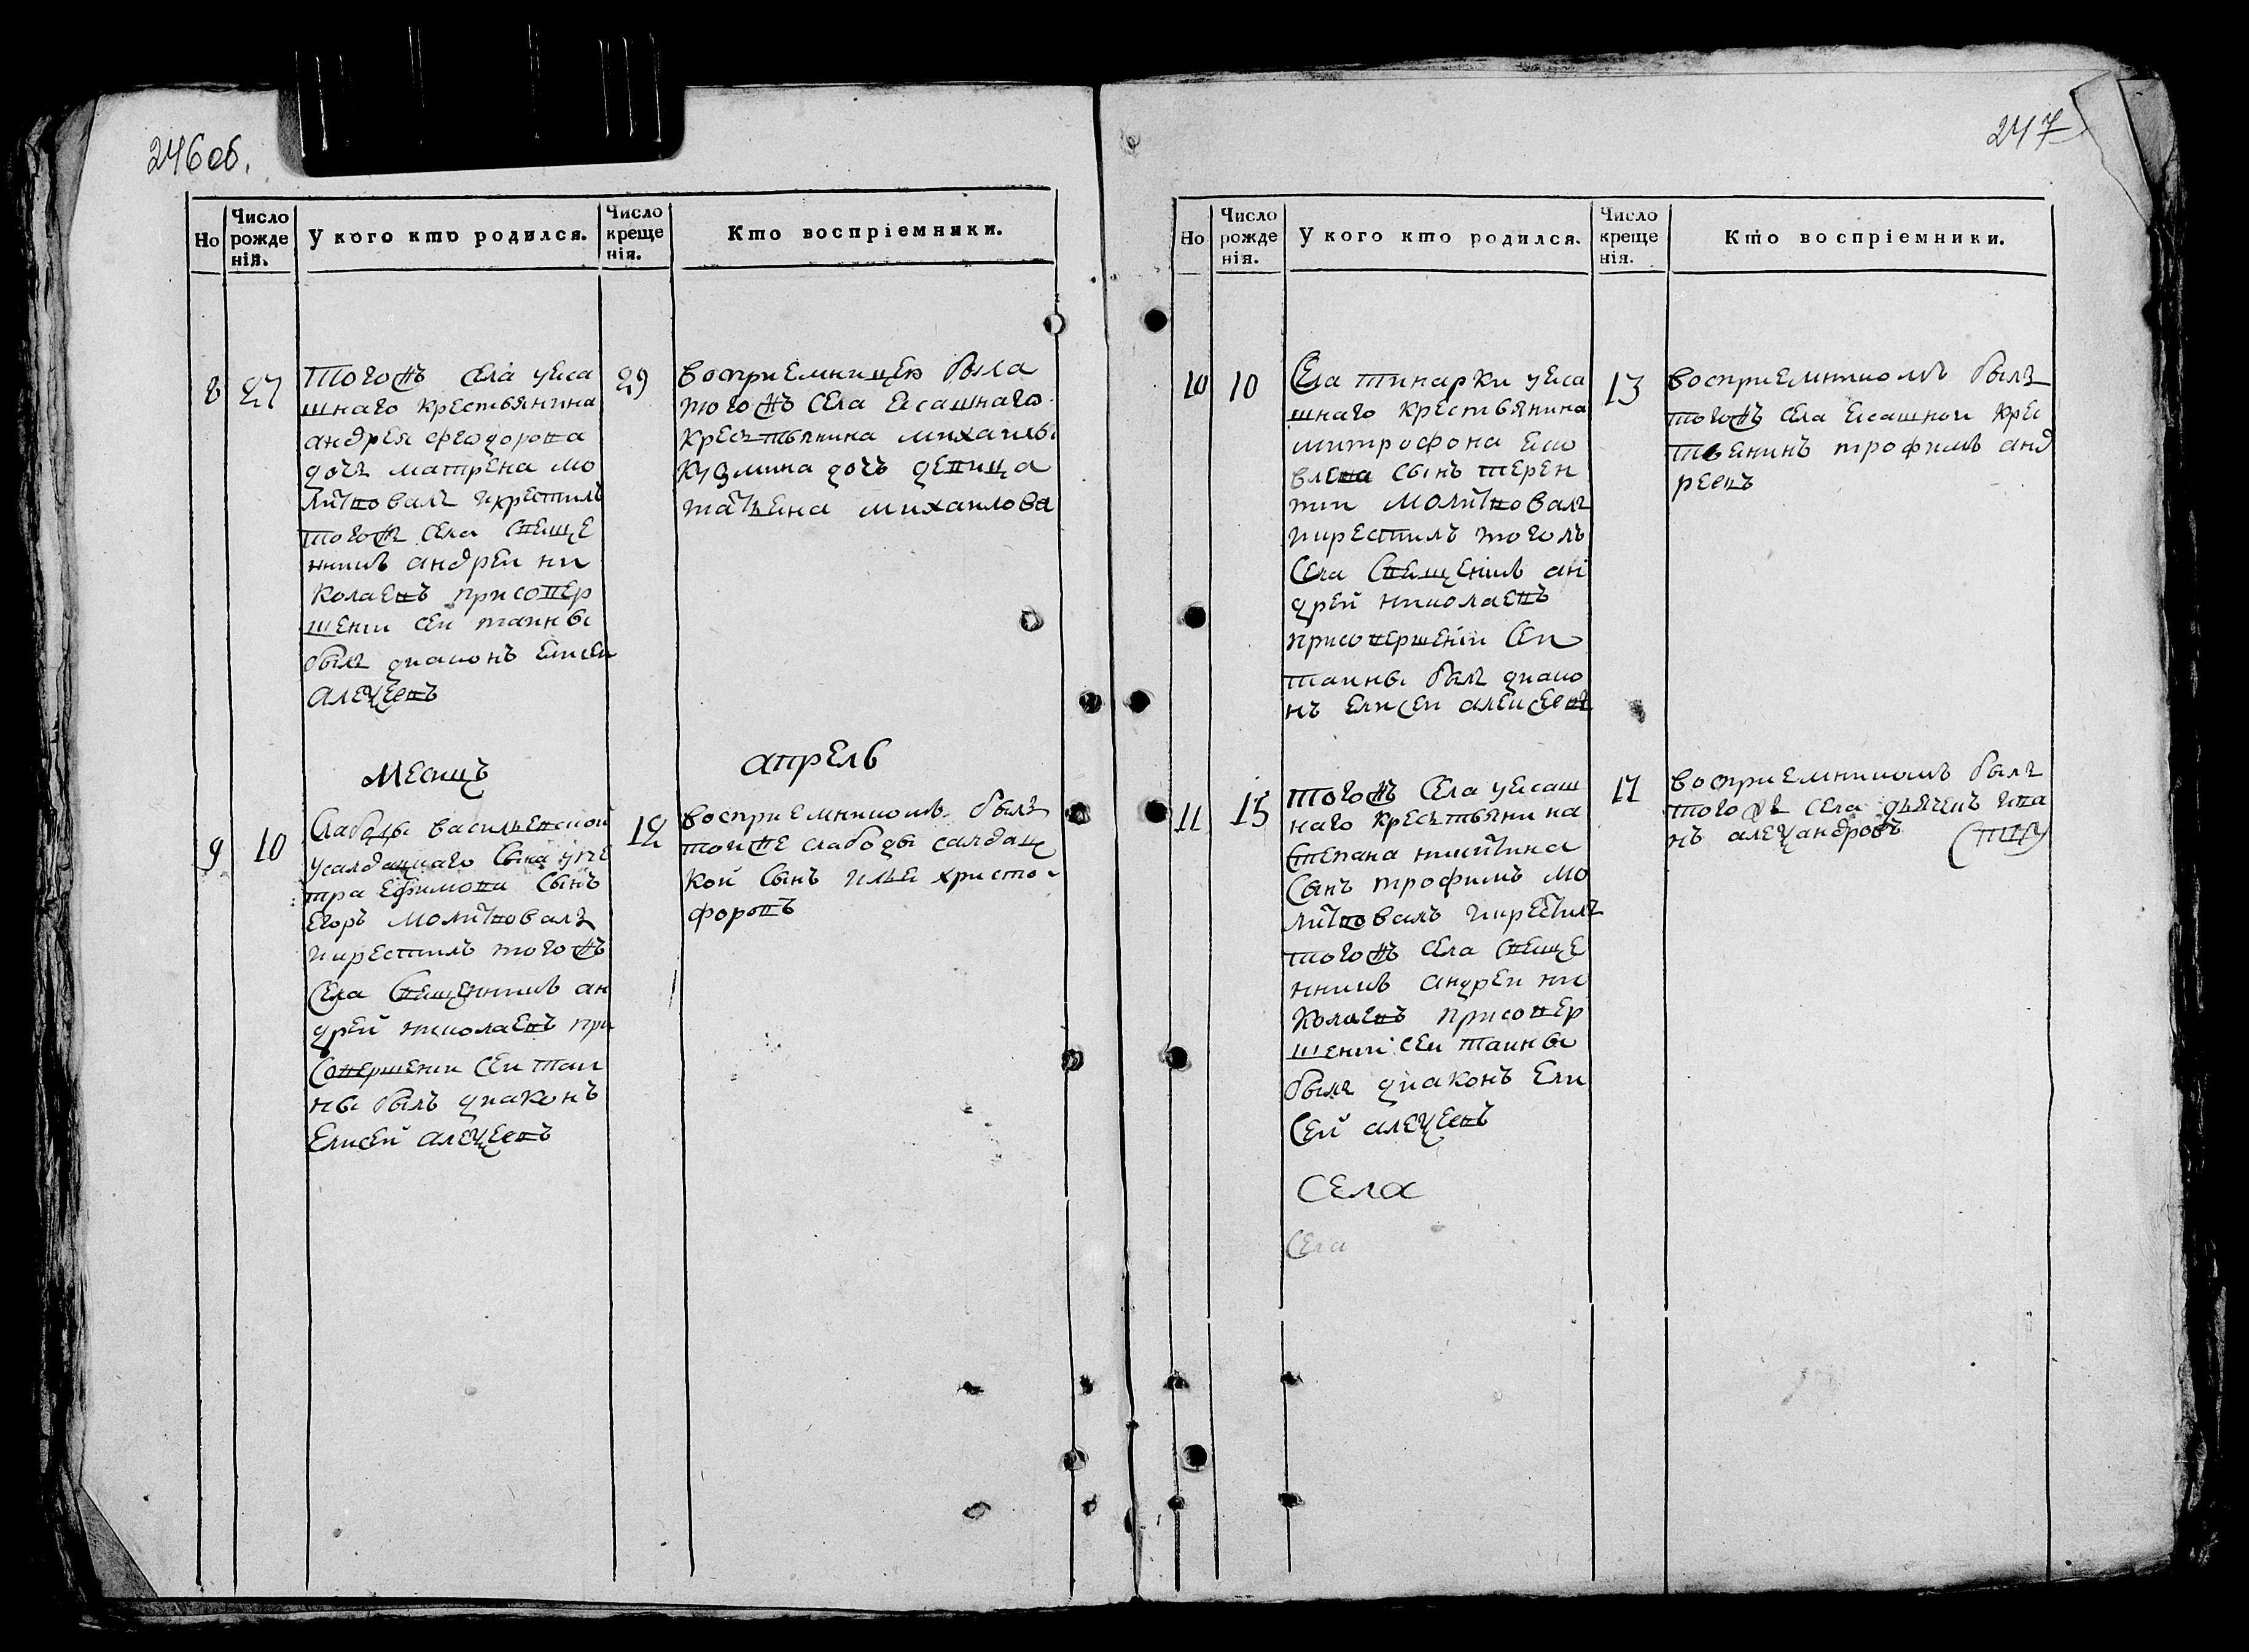 246 об.
Но
Число рожде нія.
У кого кто родился.
Число креще нія.
Кто воспріемники.
8
27
тогожъ села уеса
шнаго крестьянина
андрея феодорова
дочь матрена мо
литвовалъ икрестилъ
тогожъ села свеще
нникъ андреи ни
колаевъ присовер
шении сеи таины
былъ диаконъ елисеи
алеѯеевъ
29
восприемницею была
тогожъ села есашнаго
крестьянина михаилы
кузмина дочь девица
татьеяна михаилова
Месицъ
апрель
9
10
Слабоды васильевской
усалдацкаго сынаупе
тра ефимова сынъ
егоръ молитвовалъ
икрестилъ тогожъ
села свещенникъ ан
дрей николаевъ при
совершении сеи таи
ны былъ диаконъ
елисей алеѯеевъ
12
восприемникомъ былъ
тоижe слабоды салдац
кой сынъ илья христо-
форовъ
247
Но
Число рожде нія.
У кого кто родился.
Число креще нія.
Кто воспріемники.
10
10
Села тинарки уеса
шнаго крестьянина
митрофона еко
влева сынъ терен
тии молитвовалъ
икрестилъ тогожъ
села свещеникъ ан
дрей николаевъ
присовершении сеи
таины былъ диако
нъ елисеи алексеевъ
13
восприемникомъ былъ
тогожъ села есашнои крес
тьенинъ трофимъ анд
реевъ
11
15
тогожъ села уесаш
наго крестьянина
степана никитина
сынъ трофимъ мо
литвовалъ икрестилъ
тогожъ села свеще
нникъ андреи ни
колаевъ присовер
шении сеи таины
былъ диаконъ ели
сей алеѯеевъ
17
восприемникомъ былъ
тогожъ села дьяченъ ива
нъ алеѯандровъ
села
села